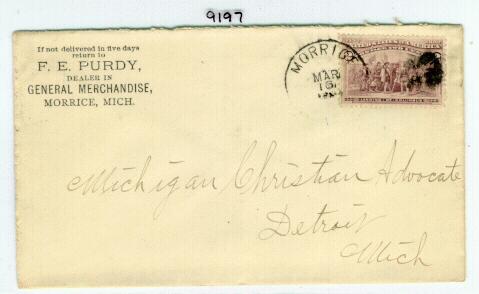 9197
If not delivered in five days
return to
F. E. PURDY,
DEALER IN
GENERAL MERCHANDISE,
MORRICE, MICH.
MORRICE
MAR
16
Michigan Christian Advocate
Detroit
Mich